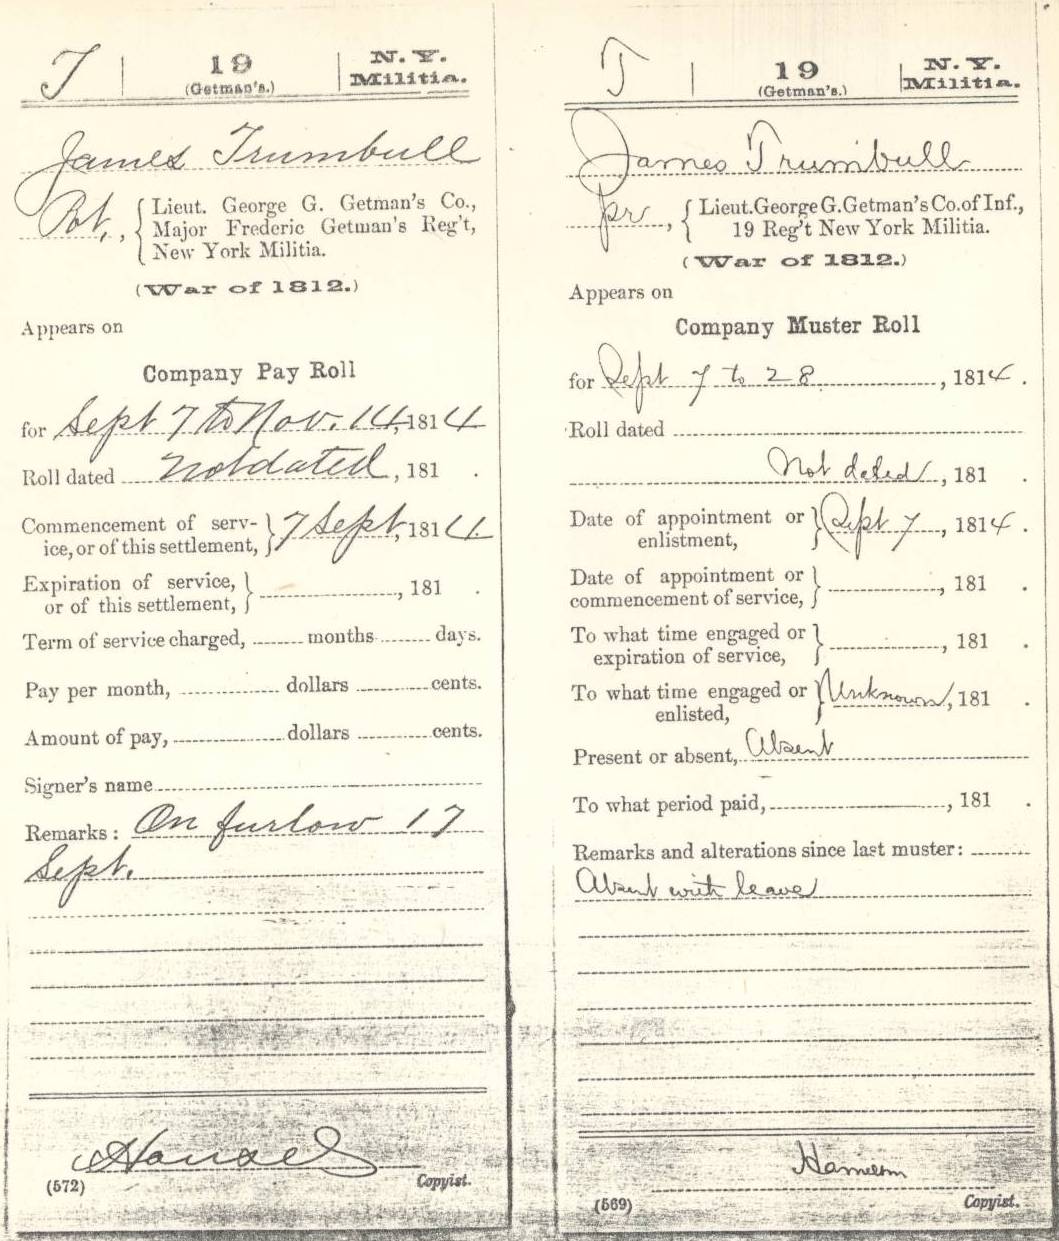 T | 19 (Getman's.) | N. Y. Militia.
James Trumbull
Pvt, , { Lieut. George G. Getman's Co.,
Major Frederic Getman's Reg't,
New York Militia.
(War of 1812.)
Appears on
Company Pay Roll
for Sept 7 to Nov. 14, 1814
Roll dated Not dated, 181 .
Commencement of serv-
ice, or of this settlement, } 7 Sept, 1814.
Expiration of service,
or of this settlement, } , 181 .
Term of service charged, months days.
Pay per month, dollars cents.
Amount of pay, dollars cents.
Signer's name
Remarks: On furlow 17
Sept.
(572)
Copyist.
T | 19 (Getman's.) | N. Y. Militia.
James Trumbull
pr , { Lieut. George G. Getman's Co. of Inf.,
19 Reg't New York Militia.
(War of 1812.)
Appears on
Company Muster Roll
for Sept 7 to 28 , 1814 .
Roll dated
Not dated , 181 .
Date of appointment or
enlistment, } Sept 7 , 1814 .
Date of appointment or
commencement of service, } , 181 .
To what time engaged or
expiration of service, } , 181 .
To what time engaged or
enlisted, } Unknown, 181 .
Present or absent, Absent
To what period paid, , 181 .
Remarks and alterations since last muster:
Absent with leave
(569)
Copyist.